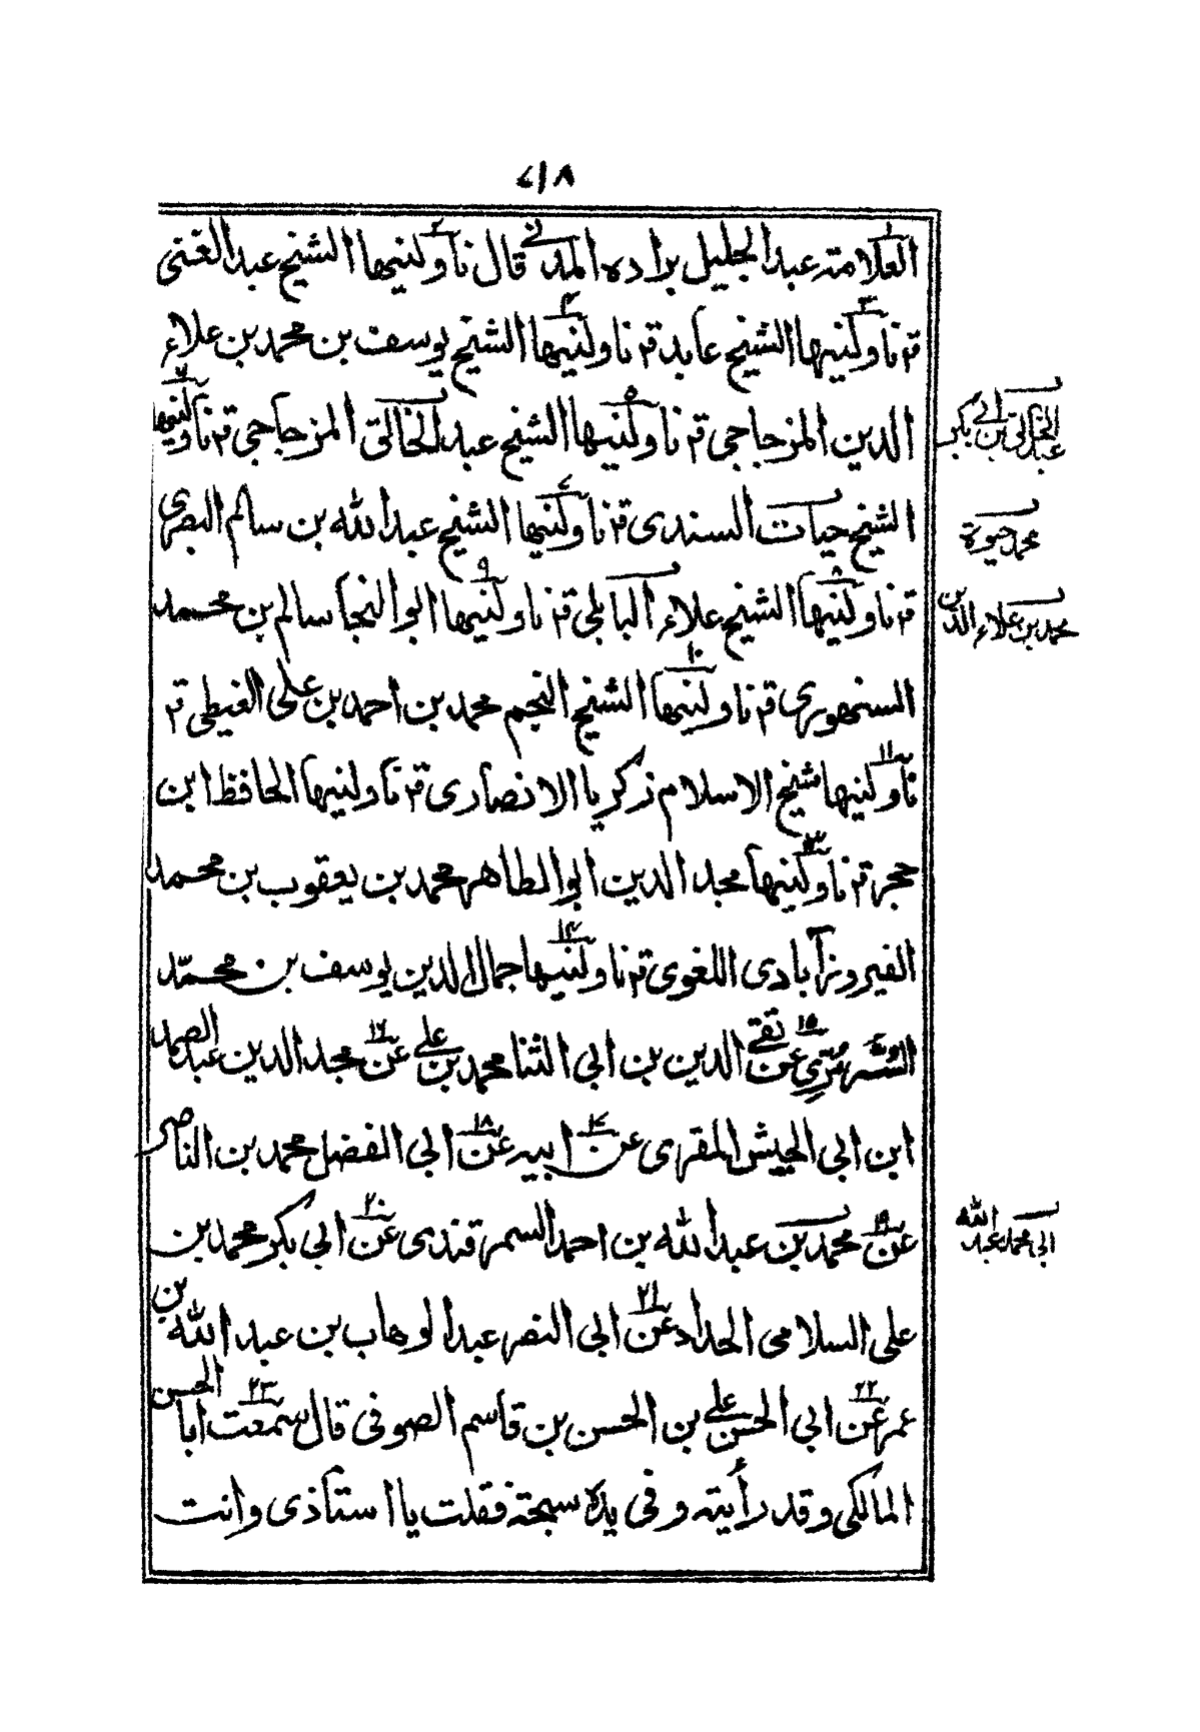 ٧١٨
العلامته عبد الجليل براده المدنی قال نا ولنيها الشيخ عبد الغنی
قۃ نا ولنيها الشيخ عابد قۃ نا ولنيها الشيخ يوسف بن محمد بن علاء
الدين المزجاجی قۃ نا ولنيها الشيخ عبد الخالق المزجاجی قۃ نا ولنيها
الشيخ حيات السندی قۃ نا ولنيها الشيخ عبد الله بن سالم البصری
قۃ نا ولنيها الشيخ علاء البابلی قۃ نا ولنيها ابو النجا سالم بن محمد
السنهوری قۃ نا ولنيها الشيخ النجم محمد بن احمد بن علی الغيطی قۃ
نا ولنيها شيخ الاسلام زكريا الانصاری قۃ نا ولنيها الحافظ ابن
حجر قۃ نا ولنيها مجد الدين ابو الطاهر محمد بن يعقوب بن محمد
الفيروزآبادی اللغوی قۃ نا ولنيها جمال الدين يوسف بن محمّد
السّرمرّی عن تقی الدين بن ابی الثنا محمد بن علی عن مجد الدين عبد الصمد
ابن ابی الجيش المقری عن ابيه عن ابی الفضل محمد بن الناصر
عن محمد بن عبد الله بن احمد السمرقندی عن ابی بكر محمد بن
علی السلامی الحداد عن ابی النصر عبد الوهاب بن عبد الله بن
عمر عن ابی الحسن علی بن الحسن بن قاسم الصوفی قال سمعت ابا الحسن
المالكی وقد رأيته وفی يده سبحته فقلت يا استاذی وانت
عبد الخالق بن ابی بكر
محمد حيوۃ
محمد بن علاء الدين
ابی محمد عبد الله